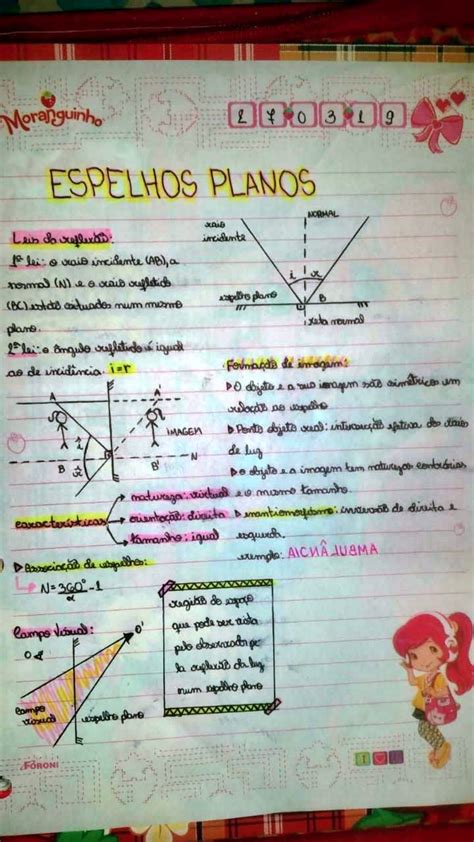 Moranguinho
270319
ESPELHOS PLANOS
Leis da reflexão:
1ª lei: o raio incidente (AB), a
normal (N) e o raio refletido
(BC) estão situados num mesmo
plano.
2ª lei: o ângulo refletido é igual
ao de incidência. i=r
raio
incidente
NORMAL
i r
espelho plano
B
reta normal
A A'
IMAGEM
i
r
B B' N
Formação de imagem:
O objeto e a sua imagem são simétricos em
relação ao espelho
Ponto objeto real: intersecção efetiva dos raios
de luz
o objeto e a imagem tem naturezas contrárias
e o mesmo tamanho.
enantiomorfismo: inversão de direita e
esquerda.
exemplo: AICNÂLUBMA
características
natureza: virtual
orientação: direita
tamanho: igual
Associação de espelhos:
N=360°/α -1
Campo visual:
O
O'
campo
visual
espelho plano
região do espaço
que pode ser vista
pelo observador pe
la reflexão da luz
num espelho plano
FORONI